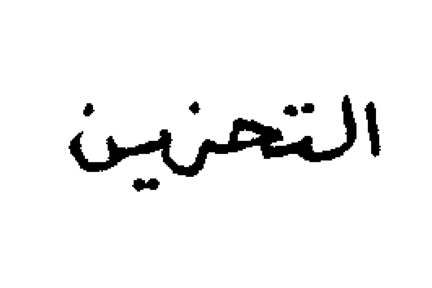 التحزين